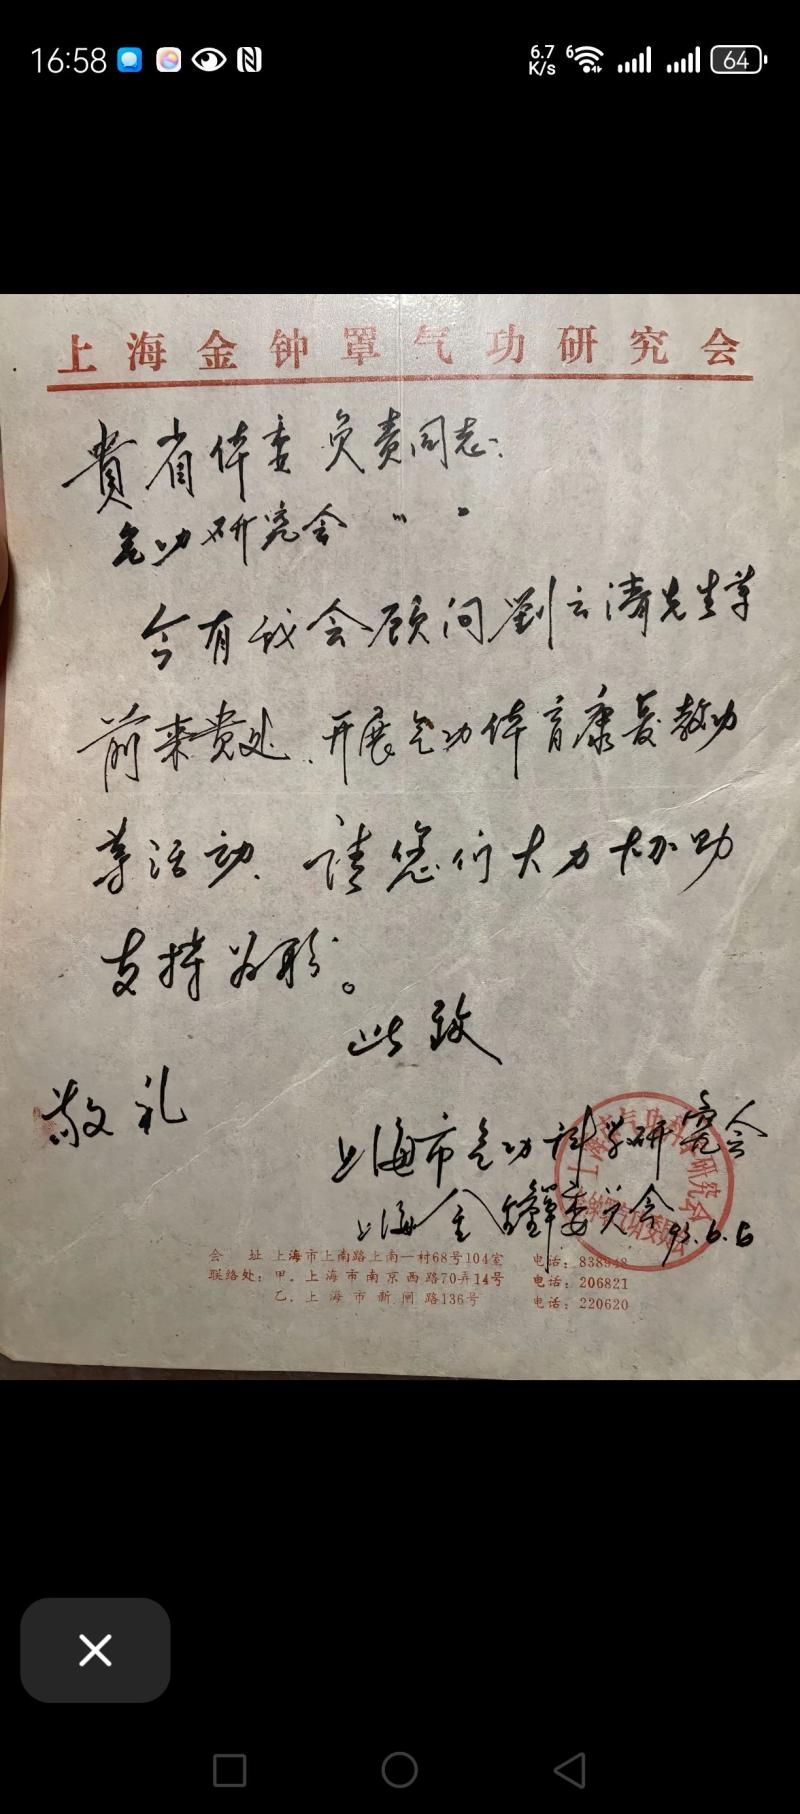 16:58
6.7 K/s
6
64
上海金钟罩气功研究会
貴省体委负责同志:
气功研究会 〃 〃
今有我会顾问劉云濤先生等
前来贵处、开展气功体育康复教功
等活动、请您们大力协助
支持为盼。
此致
敬礼
上海市气功科学研究会
上海金鐘罩委员会 93.6.6
会 址 上海市上南路上南一村68号104室 电话:838948
联络处:甲.上海市南京西路70弄14号 电话:206821
乙.上海市新闸路136号 电话:220620